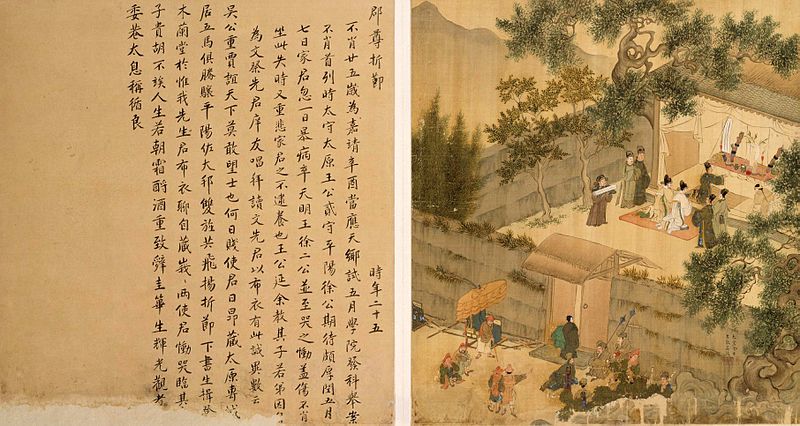 郡尊折節
時年二十五
不肖廿五歲為嘉靖辛酉當應天鄉試五月學院發科舉案
不肖首列時太守太原王公貳守平陽徐公期待頗厚閏五月
七日家君忽一日暴病卒天明王徐二公並至哭之慟蓋傷不肖
坐此失時又重悲家君之不逮養也王公延余教其子若弟因
為文祭先君序友唱拜讀文先君以布衣有此誠異數云
吳公重賈誼天下莫敢望士也何自賤使君自昂藏太原專城
居五馬俱騰驤平陽佐大邦雙旌共飛揚折節下書生揖登
木蘭堂於惟我先君布衣聊自藏峩〻兩使君慟哭臨其
子貴胡不竢人生若朝霜酹酒重致辭圭蓽生輝光觀者
委巷太息稱循良